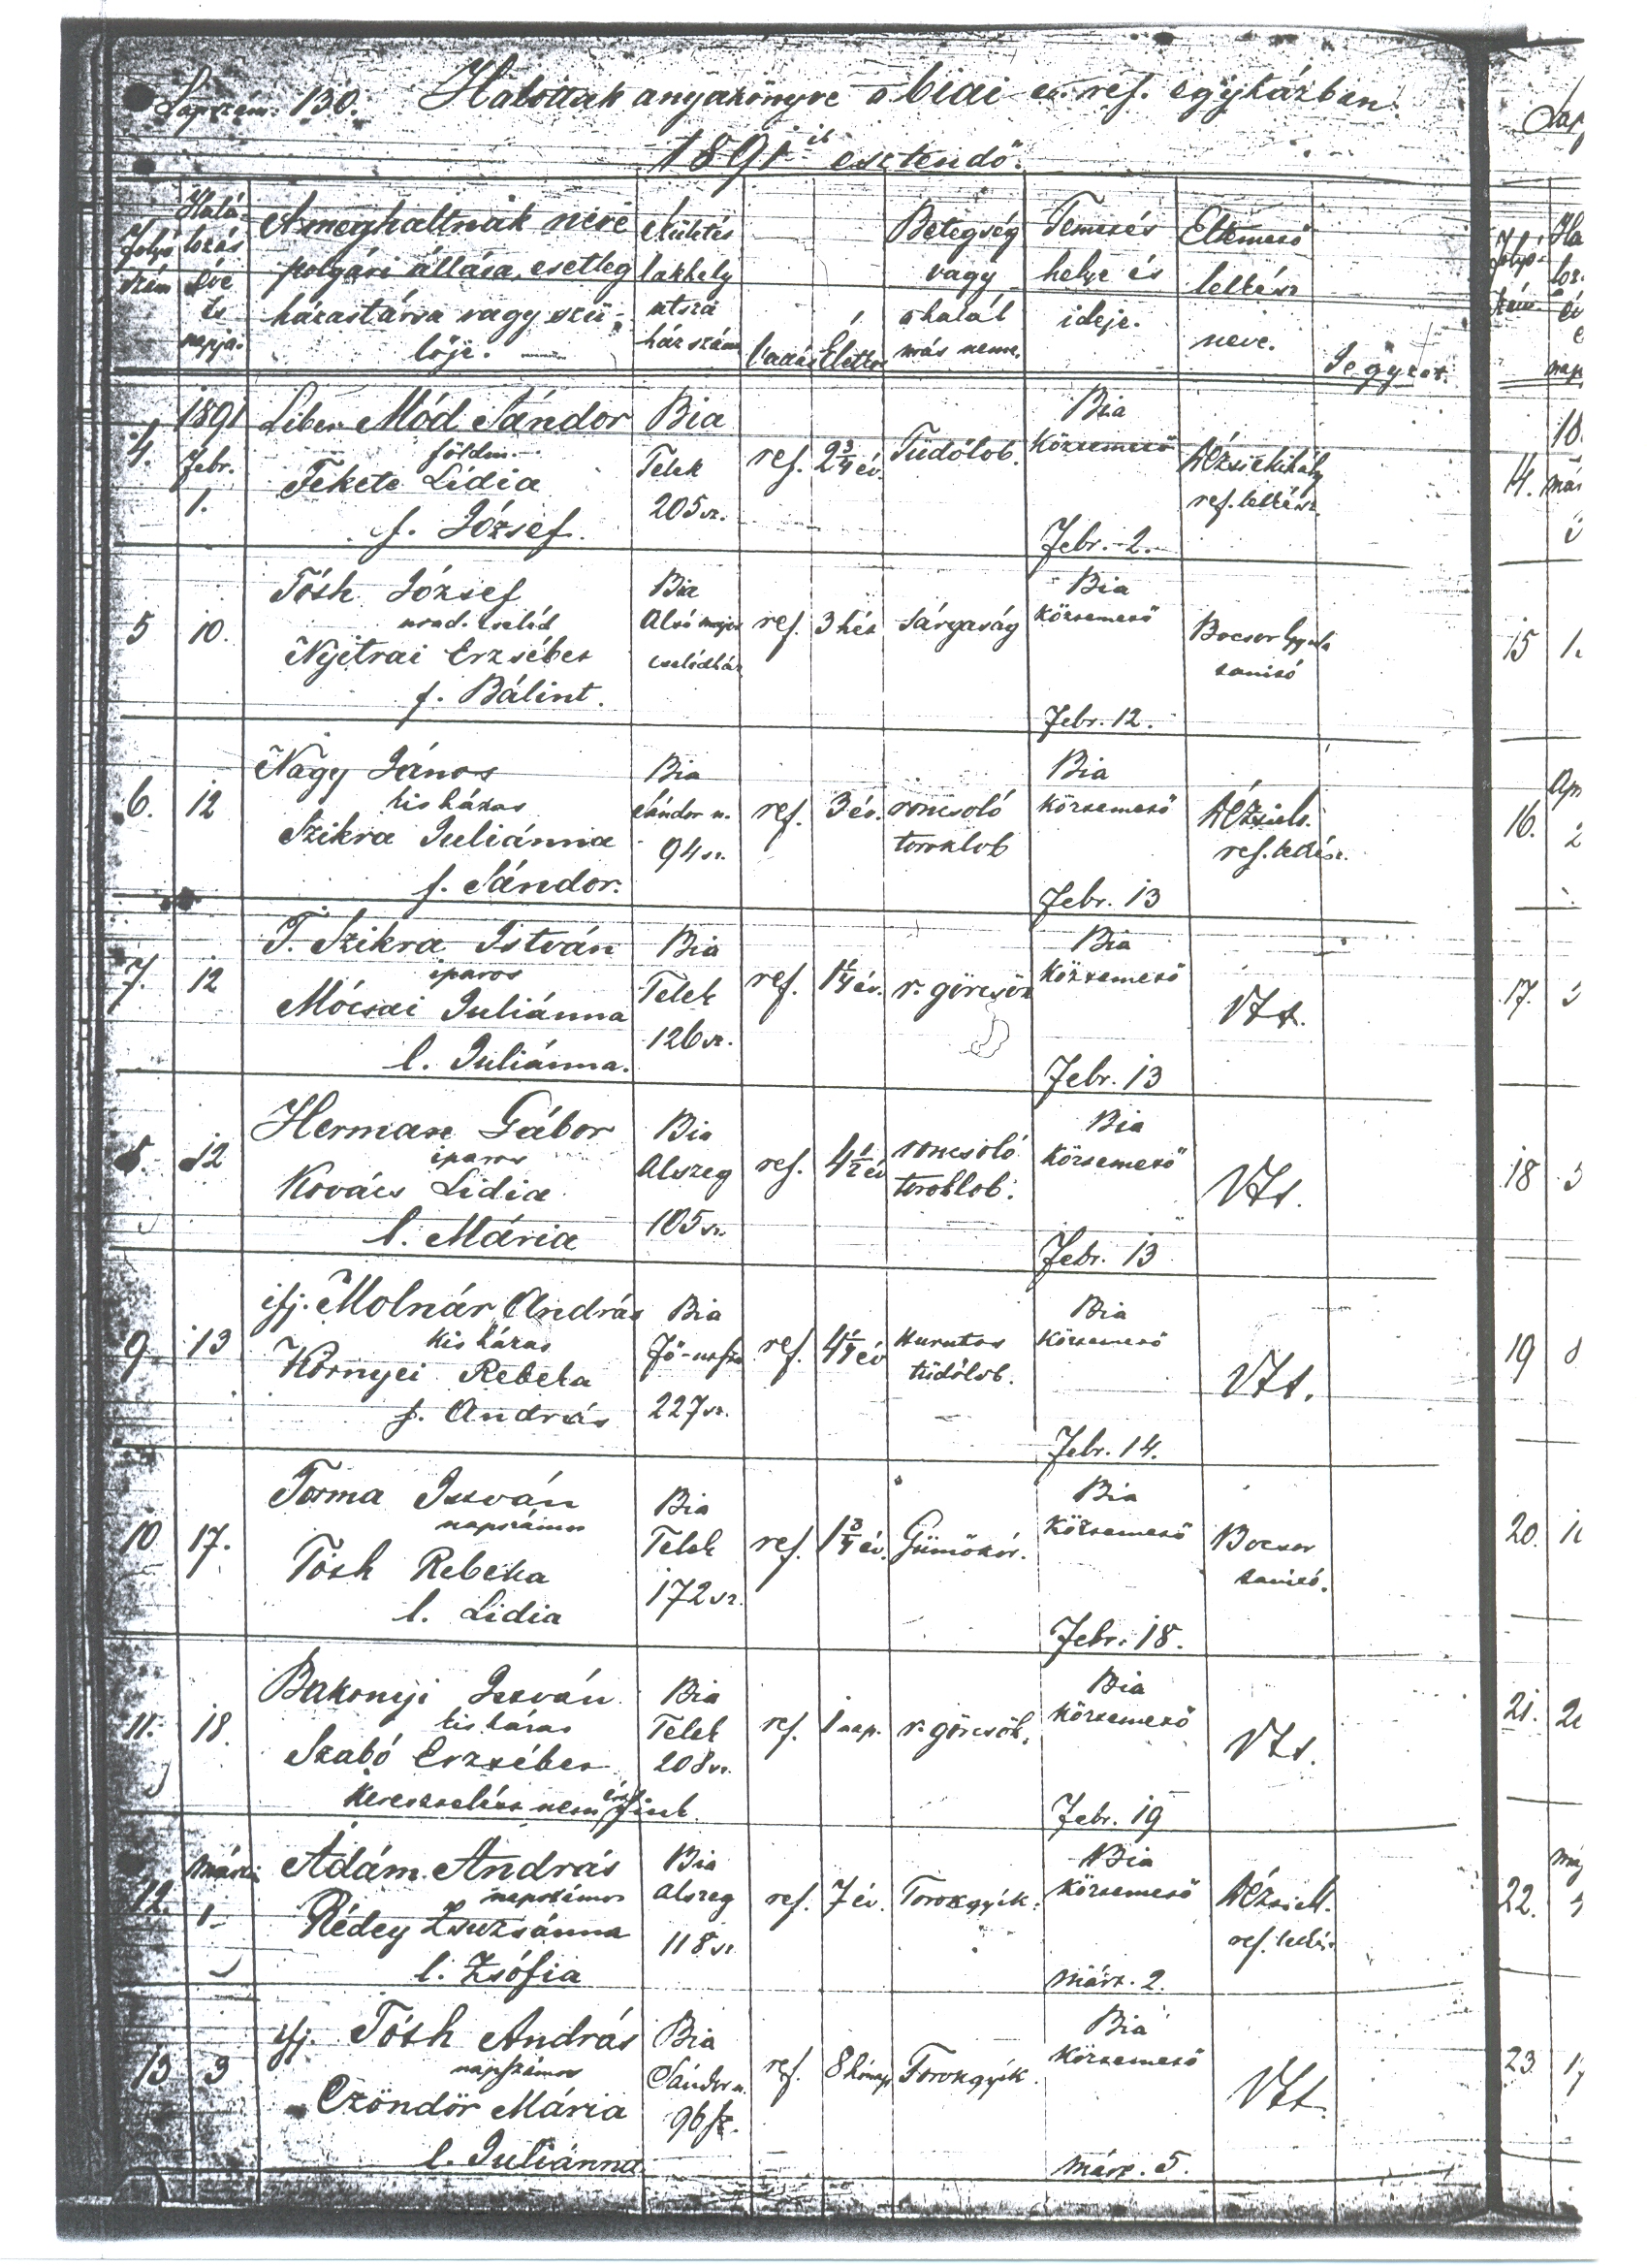 Lapszám: 130. Halottak anyakönyve a biai ev. ref. egyházban.
1891 ik esztendő.
Folyó szám
Halálozás éve és napja.
A meghaltnak neve polgári állása, esetleg házastársa vagy szülője.
Születés lakhely utsza házszám
Vallás
Élettor
Betegség vagy a halál más neme.
Temetés helye és ideje.
Eltemető lelkész neve.
Jegyzet.
4. 1891 Febr. 1.
Liber Mód Sándor
földm.
Fekete Lídia
f. József.
Bia
Telek
205 sz.
ref. 2 3/4 év. Tüdőlob.
Bia
Köztemető
Febr. 2.
ref. lelkész
5 10.
Tóth József
urad. cseléd
Nyitrai Erzsébet
f. Bálint.
Bia
Alsó major
cselédház
ref. 3 hét sárgaság
Bia
köztemető
Febr. 12.
Bocsor Gyula
tanitó
6. 12
Nagy János
kis házas
Szikra Juliánna
f. Sándor.
Bia
Sándor u.
94 sz.
ref. 3 év. roncsoló
toroklob
Bia
köztemető
Febr. 13
ref. lelkész.
7. 12
T. Szikra István
iparos
Mócsai Juliánna
l. Juliánna.
Bia
Telek
126 sz.
ref. 1 1/4 év. r. görcsök
Bia
Köztemető
Febr. 13
8. 12
Herman Gábor
iparos
Kovács Lidia
l. Mária
Bia
Alszeg
105 sz.
ref. 4 1/2 év roncsoló
toroklob.
Bia
Köztemető
Febr. 13
9. 13
ifj. Molnár András
kis házas
Környei Rebeka
f. András
Bia
Fő-utsza
227 sz.
ref. 4 1/4 év hurutos
tüdőlob.
Bia
Köztemető
Febr. 14.
10 17.
Torma István
napszámos
Tóth Rebeka
l. Lidia
Bia
Telek
172 sz.
ref. 1 3/4 év. Gümőkór.
Bia
Köztemető
Febr. 18.
Bocsor
tanitó.
11. 18.
Bakonyi István
kis házas
Szabó Erzsébet
Keresztelést nem ért fiuk.
Bia
Telek
208 sz.
ref. 1 nap. r. görcsök.
Bia
Köztemető
Febr. 19
12. márcz. 1.
Ádám András
napszámos
Rédey Zsuzsánna
l. Zsófia
Bia
Alszeg
118 sz.
ref. 7 év. Torokgyík.
Bia
köztemető
márt. 2.
ref. lelkész
13 3
ifj. Tóth András
napszámos
Czöndör Mária
l. Juliánna
Bia
Sándor u.
96 sz.
ref. 8 hónap Torokgyík.
Bia
Köztemető
márt. 5.
Lap
14.
15
16.
17.
18
19
20.
21.
22.
23